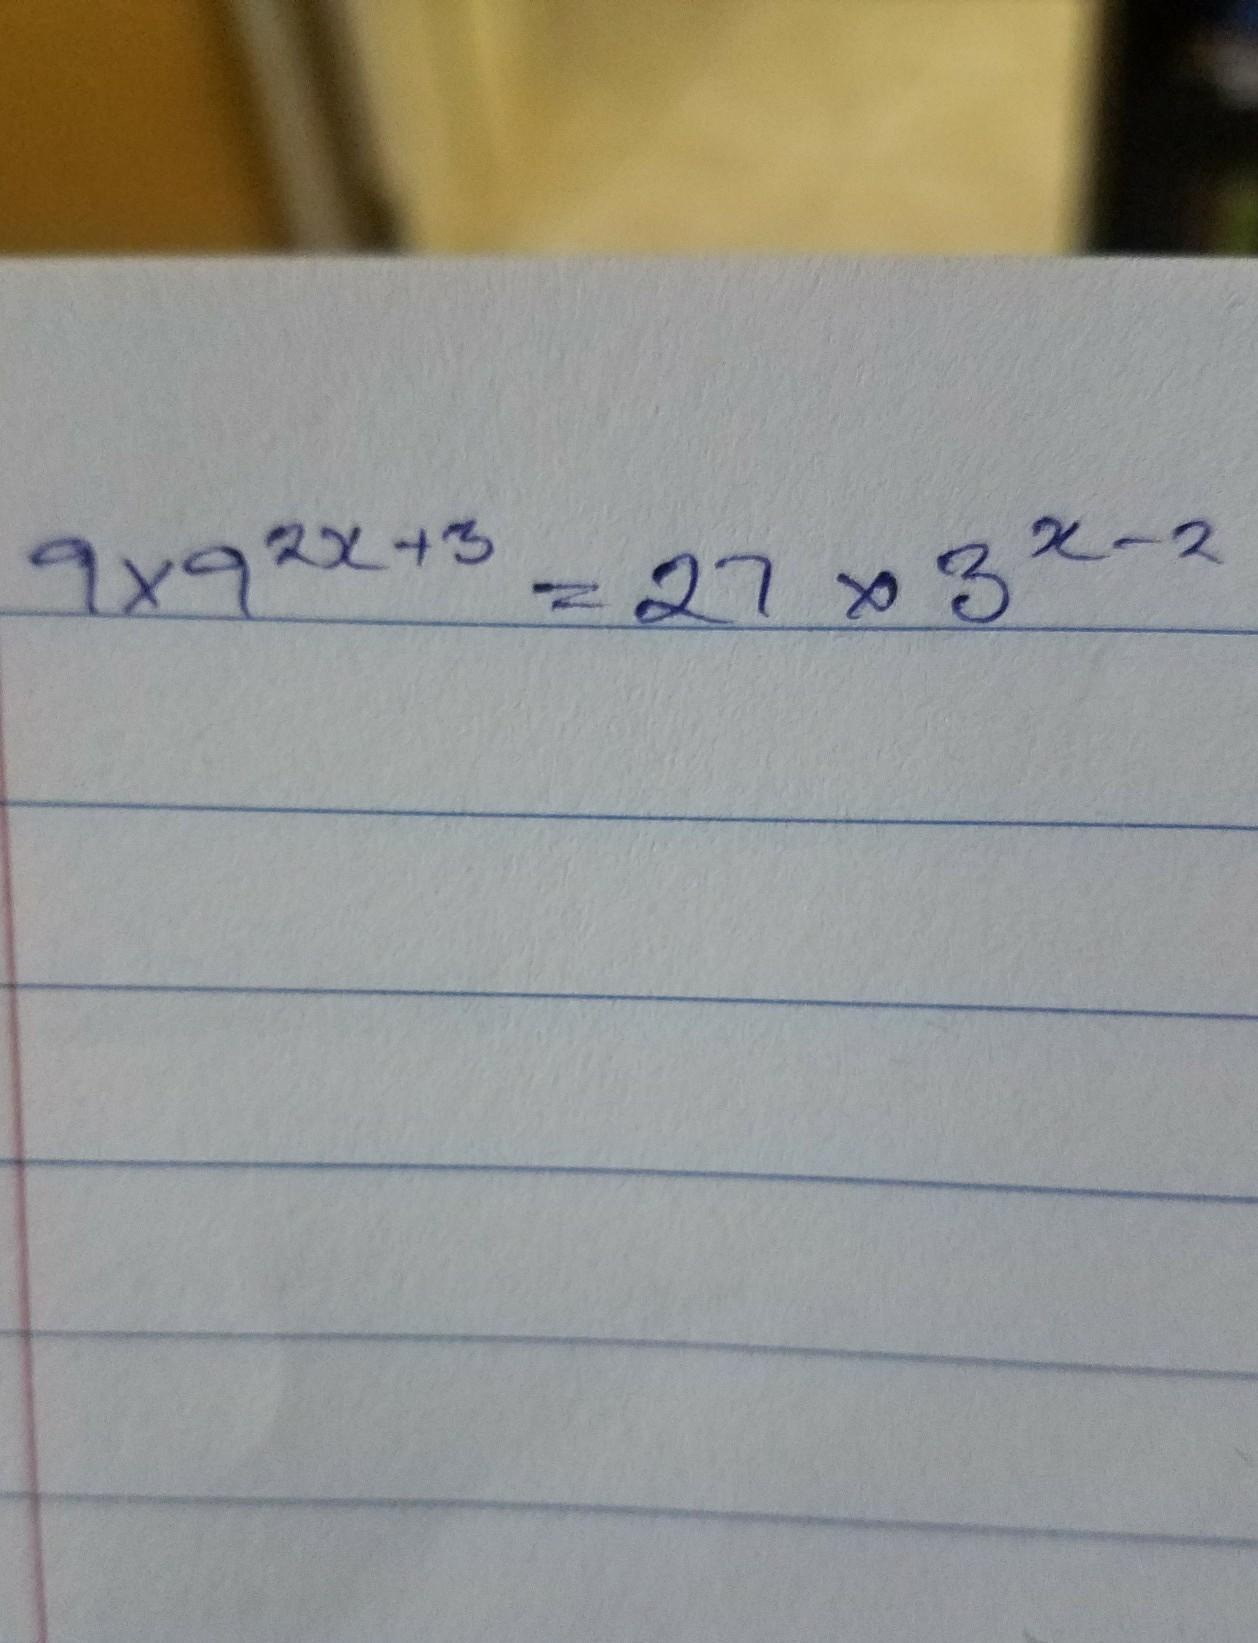 9×9^{2x+3} = 27 × 3^{x-2}